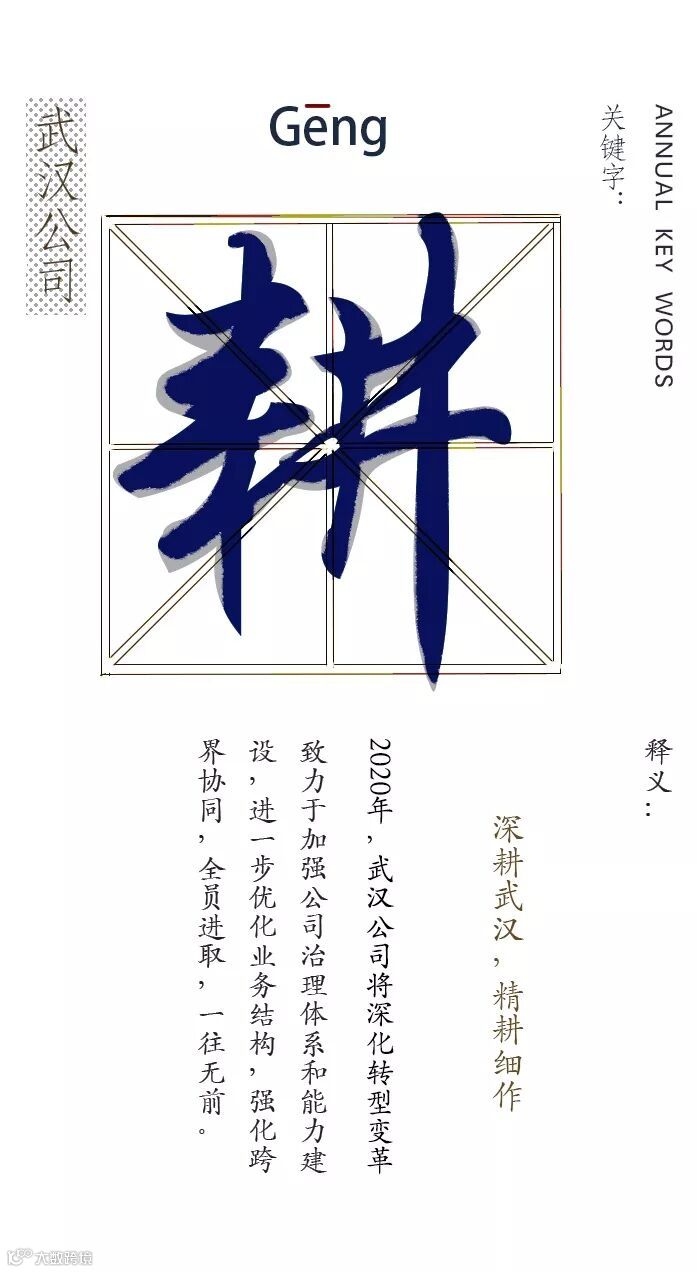 ANNUAL KEY WORDS
关键字：
Gēng
武汉公司
耕
释义：
深耕武汉，精耕细作
2020年，武汉公司将深化转型变革
致力于加强公司治理体系和能力建
设，进一步优化业务结构，强化跨
界协同，全员进取，一往无前。
大数跨境